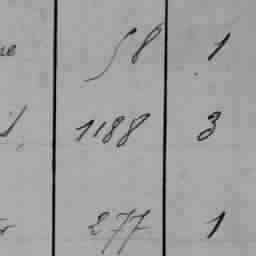 58 1
1188 3
277 1